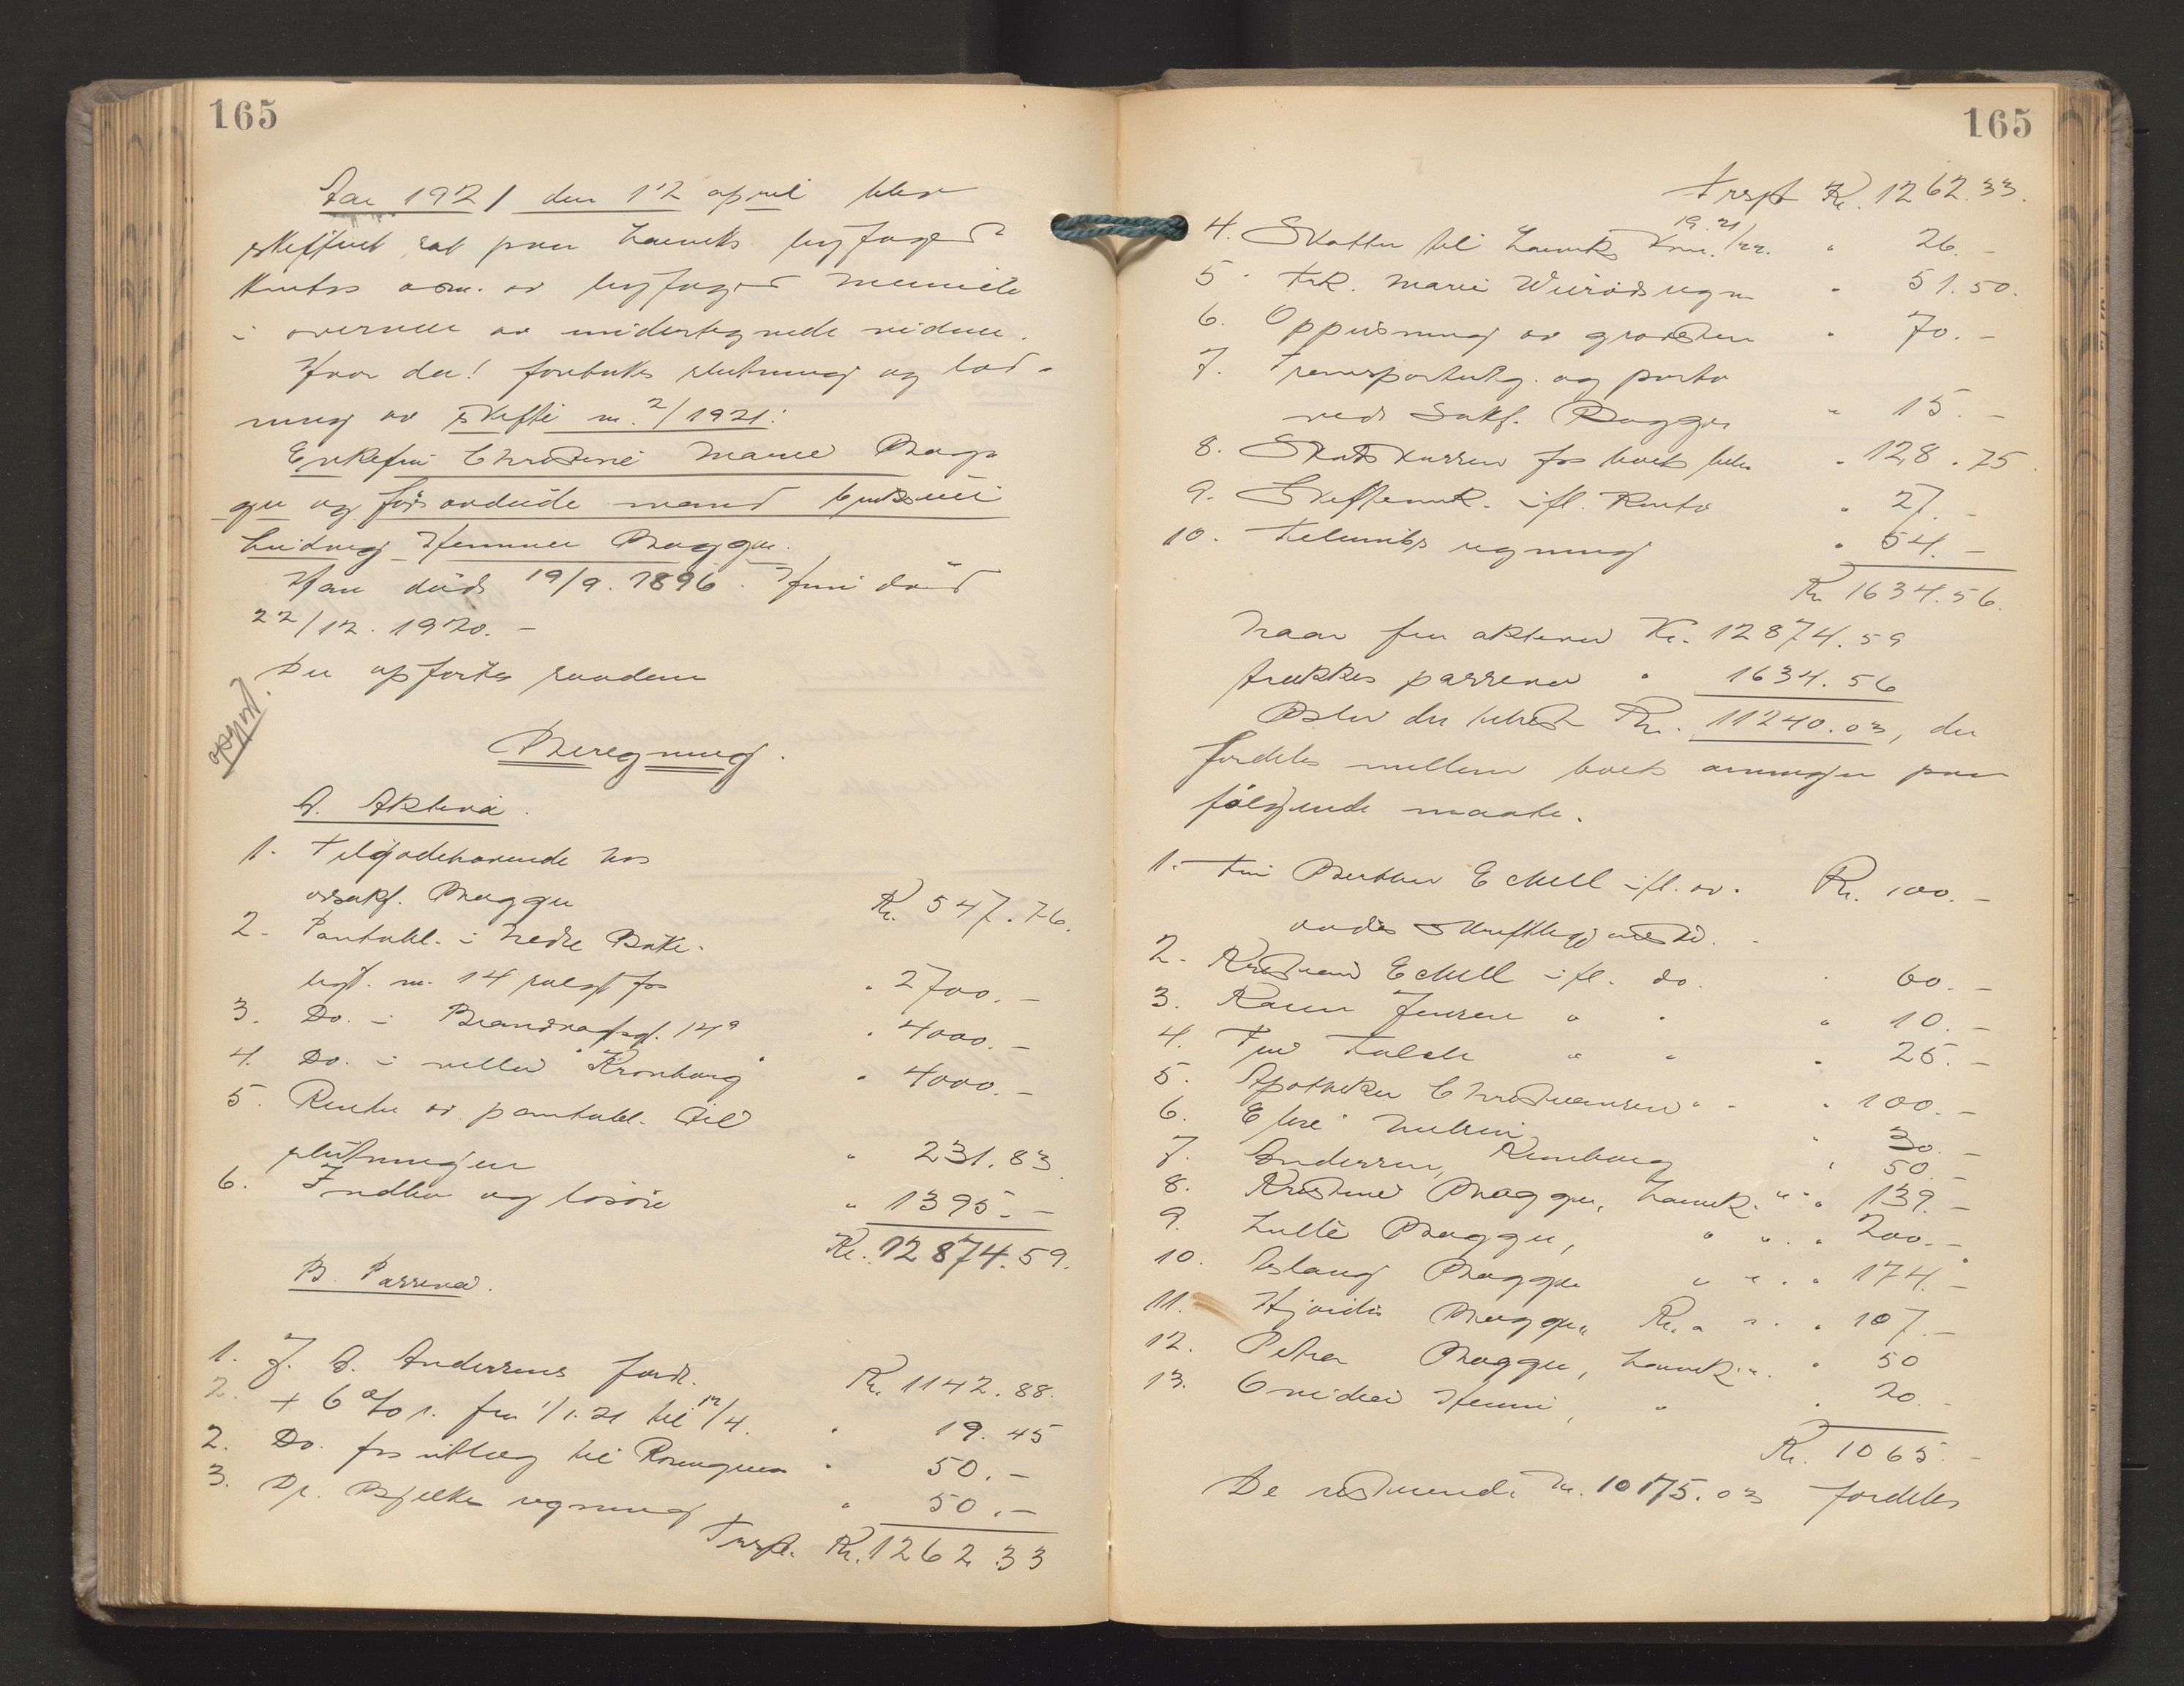 165
Aar 1921 den 12 april blev
skifteret sat paa Larviks byfoged
kontor adm. av byfoged
i overvær av undertegnede vidne.
Hvor da! foretokes slutning og lod-
ning av skifte nr. 2/1921:
Enkefru Christine Marie Bugge
og før avdøde mand
Ludvig Hemmer Bugge.
Han døde 19/9. 1896. Hun død
22/12. 1920. –
Der opførtes saadan
opgjort
Beregning.
A. Aktiva.
1. Tilgodehavende hos
o.r.sakf. Bugge Kr. 547.76.
2. Pantobl. i nedre Bøke-
ligt. nr. 14 solgt for " 2700. –
3. Do. i 14a " 4000. –
4. Do. i villa "Kronborg" " 4000. –
5. Renter av pantobl. til
slutningen " 231.83
6. Indbo og løsøre " 1395. –
Kr. 12874.59.
B. Passiva.
1. J. A. Anderssens fordr. Kr. 1142.88.
2. + 6 % r. fra 1/1.21 til 12/4. " 19.45
2. Do. for utlæg til " 50. –
3. Dr. Bjelkes regning " 50. –
Trspt. Kr. 1262.33
165
Trspt Kr. 1262.33.
4. Skatter til Larviks kom. 19 21/22. " 26. –
5. Frk. Marie regn " 51.50.
6. Oppusning av gravsten " 70. –
7. Transportutg. og porto
ved Sakf. Bugge " 15. –
8. Skatskassen for boets " 128.75.
9. Skifteomk. ifl. konto " 27. –
10. regning " 54. –
Kr 1634.56.
Naar fra aktiva Kr. 12874.59
trækkes passiva " 1634.56
Blir der behold Kr. 11240.03, der
fordeles mellem boets arvinger paa
følgende maate.
1. Fru Berthea Echell ifl. av- Kr. 100. –
dødes
2. Kristian Echell ifl. do. " 60. –
3. Karen Jensen " " " 10. –
4. Fru " " " 25. –
5. Apotheker Christiansen " " " 100. –
6. Elise Nilsen " 30. –
7. Anderssen, " 50. –
8. Kristine Bugge, Larvik. " " " 139. –
9. Lulle Bugge, " " " 200. –
10. Aslaug Bugge " " " 174. –
11. Hjørdis Bugge, Kr.a " " 107. –
12. Petra Bugge, Larvik " " 50
13. Henni, " " 20. –
Kr. 1065. –
De resterende kr. 10175.03 fordeles